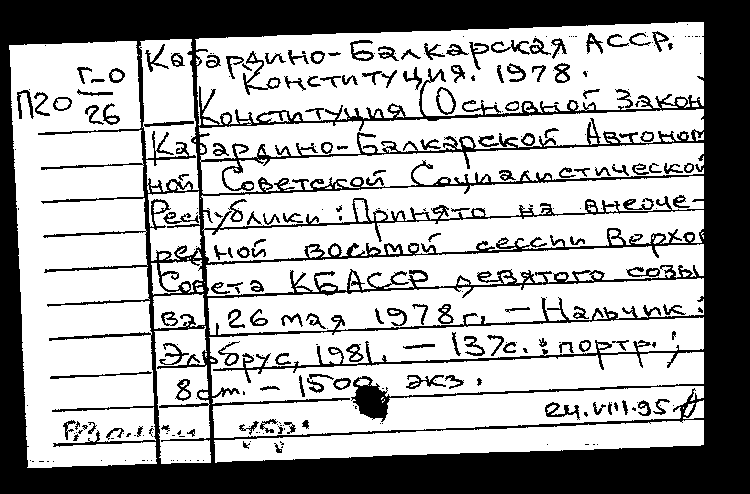 Кабардино-Балкарская АССР.
Г-0
Конституция. 1978.
П20 26
Конституция (Основной Закон
Кабардино-Балкарской Автоном
ной Советской Социалистической
Республики: Принято на внеоче-
редной восьмой сессии Верхов
Совета КБАССР девятого созы
ва, 26 мая 1978г. – Нальчик:
Эльбрус, 1981. – 137с.: портр.;
8см. – 1500 экз.
24.VIII.95